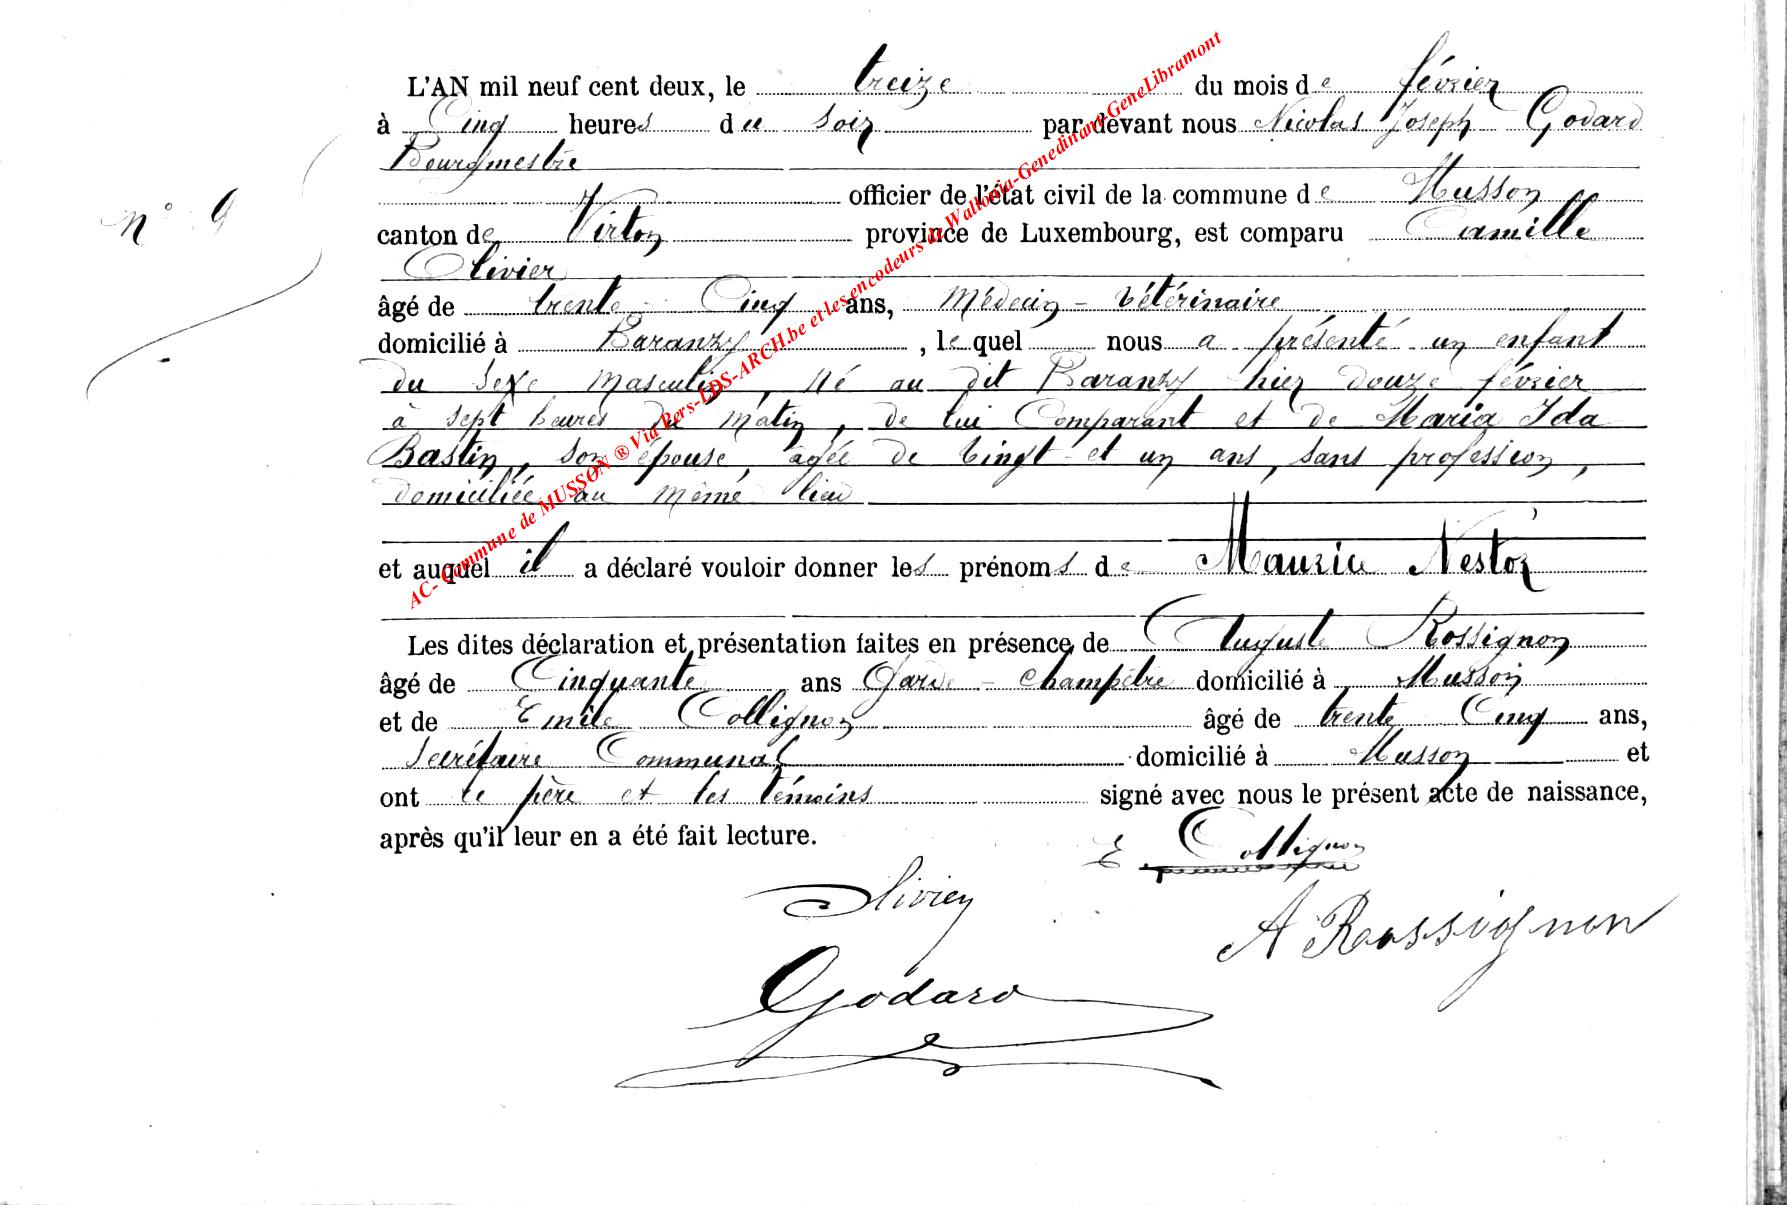 L'AN mil neuf cent deux, le treize du mois de février
à Cinq heures du soir par devant nous Nicolas Joseph Godard
Bourgmestre
officier de l'état civil de la commune de Musson
N° 9
canton de Virton province de Luxembourg, est comparu Camille
Olivier
âgé de trente Cinq ans, Médecin-Vétérinaire
domicilié à Baranzy, le quel nous a présenté un enfant
du sexe masculin, né au dit Baranzy hier douze février
à sept heures du matin, de lui Comparant et de Maria Ida
Bastin, son épouse, agée de vingt et un ans, sans profession,
domiciliée au même lieu
et auquel il a déclaré vouloir donner les prénoms de Maurice Nestor
Les dites déclaration et présentation faites en présence de Auguste Rossignon
âgé de Cinquante ans Garde-champêtre domicilié à Musson
et de Emile Collignon âgé de trente Cinq ans,
Secrétaire Communal domicilié à Musson et
ont le père et les témoins signé avec nous le présent acte de naissance,
après qu'il leur en a été fait lecture.
E Collignon
Olivier
A Rossignon
Godard
AC- Commune de MUSSON ® Via Pers-LDS-ARCH.be et les encodeurs de Wallonia-Genedinant-GeneLibramont